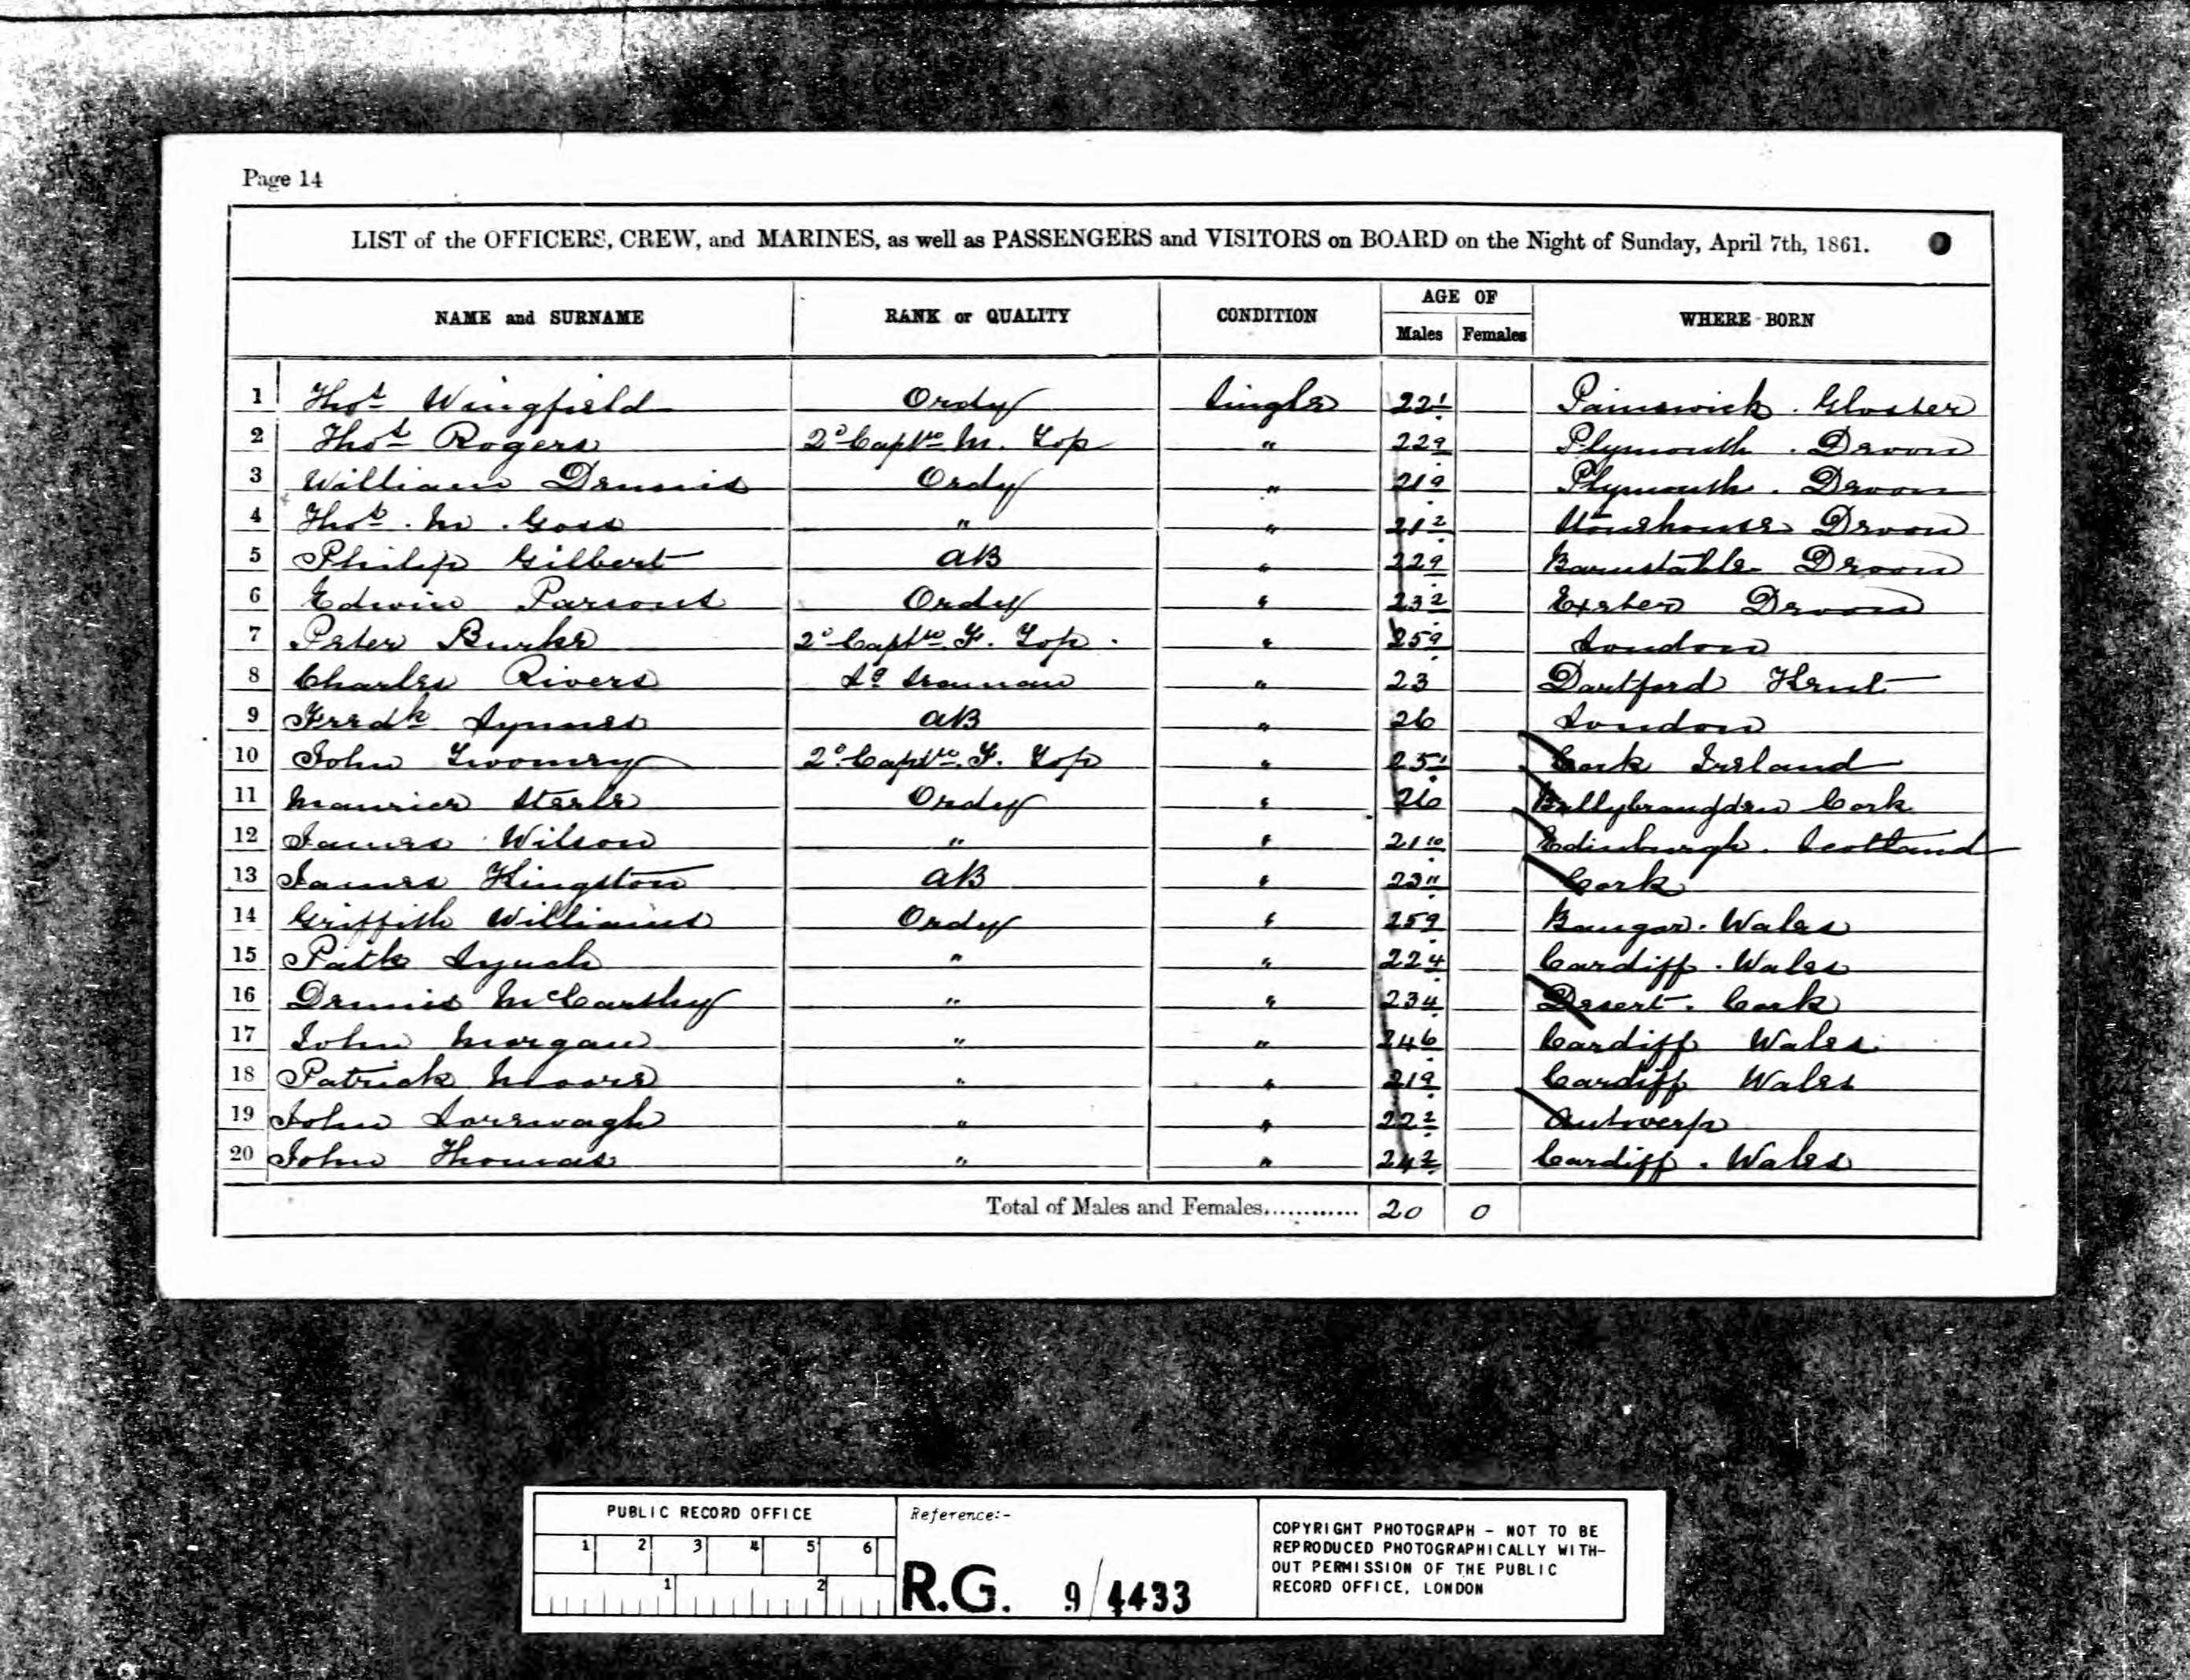 Page 14
LIST of the OFFICERS, CREW, and MARINES, as well as PASSENGERS and VISITORS on BOARD on the Night of Sunday, April 7th, 1861.
NAME and SURNAME RANK or QUALITY CONDITION AGE OF WHERE BORN
Males Females
1 Thos Wingfield Ordy Single 22 1 Painswick . Gloster
2 Thos Rogers 2d Captn M. Top " 22 9 Plymouth . Devon
3 William Dennis Ordy " 21 9 Plymouth . Devon
4 Thos . M . Goss " " 21 2 Stonehouse Devon
5 Philip Gilbert AB " 22 9 Barnstable Devon
6 Edwin Parsons Ordy " 23 2 Exeter Devon
7 Peter Burke 2d Captn F. Top " 25 9 London
8 Charles Rivers " 23 Dartford Kent
9 Fredk Symes AB " 26 London
10 John Twomey 2d Captn F. Top " 25 1 Cork Ireland
11 Maurice Steele Ordy " 26 Cork
12 James Wilson " " 21 10 Edinburgh . Scotland
13 James Kingston AB " 23 11 Cork
14 Griffith Williams Ordy " 25 9 Bangor . Wales
15 Patk Lynch " " 22 4 Cardiff . Wales
16 Dennis McCarthy " " 23 4 Desert . Cork
17 John Morgan " " 24 6 Cardiff Wales
18 Patrick Moore " " 21 9 Cardiff Wales
19 John " " 22 2 Antwerp
20 John Thomas " " 24 2 Cardiff . Wales
Total of Males and Females............ 20 0
PUBLIC RECORD OFFICE
1 2 3 4 5 6
1 2
Reference:-
R.G. 9/4433
COPYRIGHT PHOTOGRAPH - NOT TO BE
REPRODUCED PHOTOGRAPHICALLY WITH-
OUT PERMISSION OF THE PUBLIC
RECORD OFFICE, LONDON